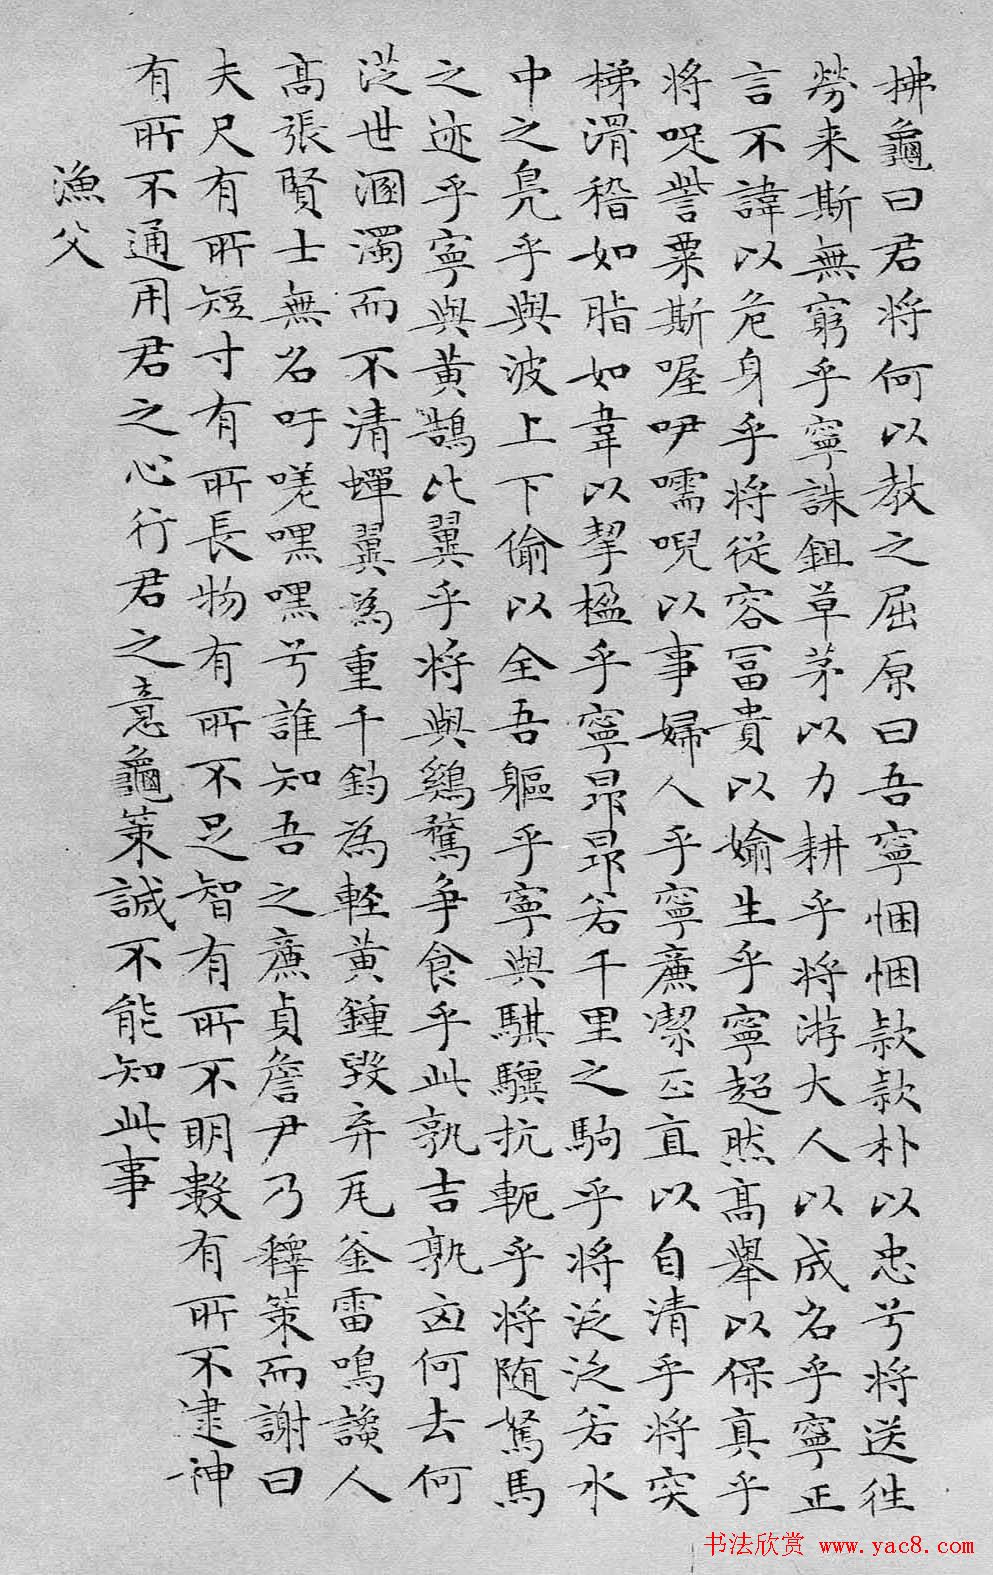 拂龜曰君将何以教之屈原曰吾寧悃悃款款朴以忠乎将送往
勞来斯無窮乎寧誅鉏草茅以力耕乎将游大人以成名乎寧正
言不諱以危身乎将從容冨貴以媮生乎寧超然高舉以保真乎
将哫訾粟斯喔咿嚅唲以事婦人乎寧廉潔正直以自清乎将突
梯滑稽如脂如韋以挈楹乎寧昂昂若千里之駒乎将泛泛若水
中之鳬乎與波上下偷以全吾軀乎寧與騏驥抗軛乎将随駑馬
之迹乎寧與黄鵠比翼乎将與鷄鶩争食乎此孰吉孰凶何去何
從世溷濁而不清蟬翼為重千鈞為輕黄鍾毀弃瓦釜雷鳴讒人
高張賢士無名吁嗟嘿嘿兮誰知吾之廉貞詹尹乃釋策而謝曰
夫尺有所短寸有所長物有所不足智有所不明數有所不逮神
有所不通用君之心行君之意龜策誠不能知此事
漁父
书法欣赏 www.yac8.com